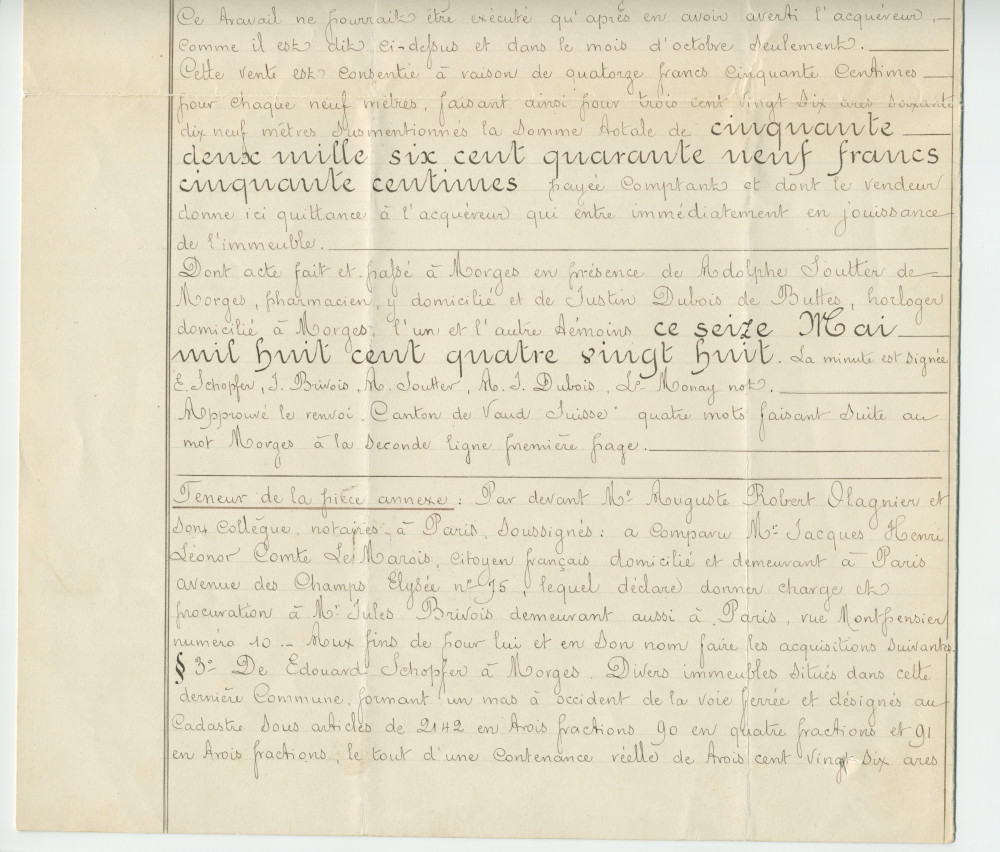 Ce travail ne pourrait être exécuté qu'après en avoir averti l'acquéreur,
comme il est dit ci-dessus et dans le mois d'octobre seulement.
Cette vente est consentie à raison de quatorze francs cinquante centimes
pour chaque neuf mètres, faisant ainsi pour trois cent vingt six ares soixante
dix neuf mètres susmentionnés la somme totale de cinquante
deux mille six cent quarante neuf francs
cinquante centimes payée comptant et dont le vendeur
donne ici quittance à l'acquéreur qui entre immédiatement en jouissance
de l'immeuble.
Dont acte fait et passé à Morges en présence de Adolphe Soutter de
Morges, pharmacien, y domicilié et de Justin Dubois de Buttes, horloger
domicilié à Morges, l'un et l'autre témoins ce seize Mai
mil huit cent quatre vingt huit. La minute est signée
E. Schopfer, J. Brivois, A. Soutter, A. J. Dubois, Ls Monay not.
Approuvé le renvoi. Canton de Vaud Suisse" quatre mots faisant suite au
mot Morges à la seconde ligne première page.
Teneur de la pièce annexe : Par devant Me Auguste Robert Olagnier et
son collègue, notaires à Paris, soussignés : a comparu Mr Jacques Henri
Léonor Comte Le Marois, citoyen français domicilié et demeurant à Paris
avenue des Champs Elysée no 75, lequel déclare donner charge et
procuration à Mr Jules Brivois demeurant aussi à Paris, rue Montpensier
numéro 10 .- Aux fins de pour lui et en son nom faire les acquisitions suivantes.
§ 3o De Edouard Schopfer à Morges. Divers immeubles situés dans cette
dernière Commune, formant un mas à occident de la voie ferrée et désignés au
Cadastre sous articles de 2142 en trois fractions 90 en quatre fractions et 91
en trois fractions, le tout d'une contenance réelle de trois cent vingt six ares